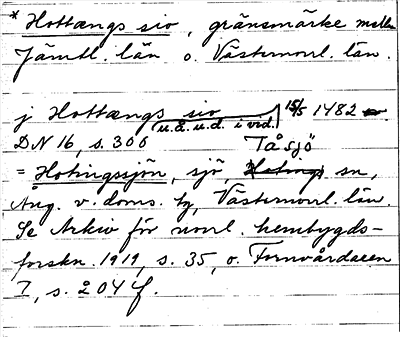 * Hottængs sio, gränsmärke mellan
Jämtl. län o. Västernorrl. län.
j Hottængs sio 15/5 1482
u.å.u.d. i vid.
DN 16, s. 300 Tåsjö
= Hotingssjön, sjö, Hotings sn,
Ång. v. doms. hg, Västernorrl. län.
Se Arkiv för norrl. hembygds-
forskn. 1919, s. 35, o. Fornvårdaren
7, s. 204 f.